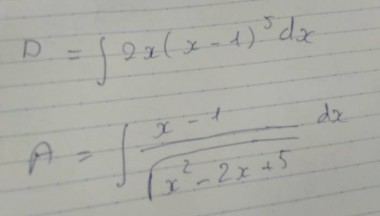 D = ∫ 2x(x-1)⁵ dx
A = ∫ (x-1)/√(x²-2x+5) dx